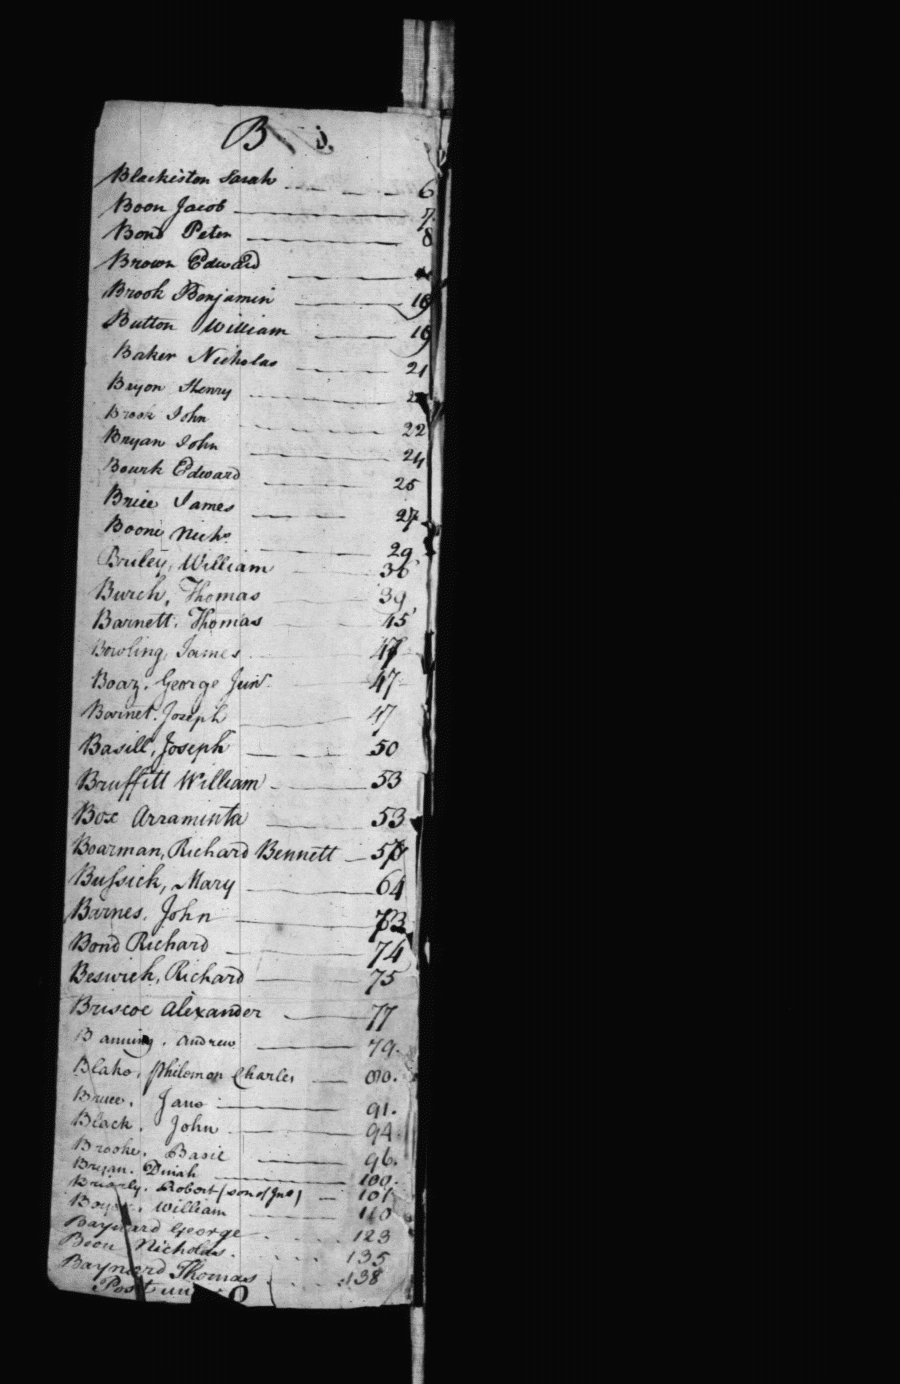 B
Blackiston Sarah 6
Boon Jacob 7
Bond Peter 8
Brown Edward
Brook Benjamin 16
Button William 19
Baker Nicholas 21
Bryon Henry
Brook John 22
Bryan John 24
Bourk Edward 25
Brice James 27
Boone Nichs 29
Briley, William 36
Burch, Thomas 39
Barnett, Thomas 45
Bowling, James 47
Boaz, George Junr 47
Barnet, Joseph 47
Basill, Joseph 50
Bruffitt William 53
Box Arraminta 53
Boarman, Richard Bennett
Bussick, Mary 64
Barnes, John 73
Bond Richard 74
Beswick, Richard 75
Briscoe Alexander 77
Banning, Andrew 79.
Blake, Philemon Charles 80.
Bruce, Jane 91.
Black, John 94
Brooke, Basil 96.
Bryan, Dinah 100.
Brierly, Robert (son of Jno) 101
William 110
Baynard George 123
Boon Nicholas. 135
Baynard Thomas 138